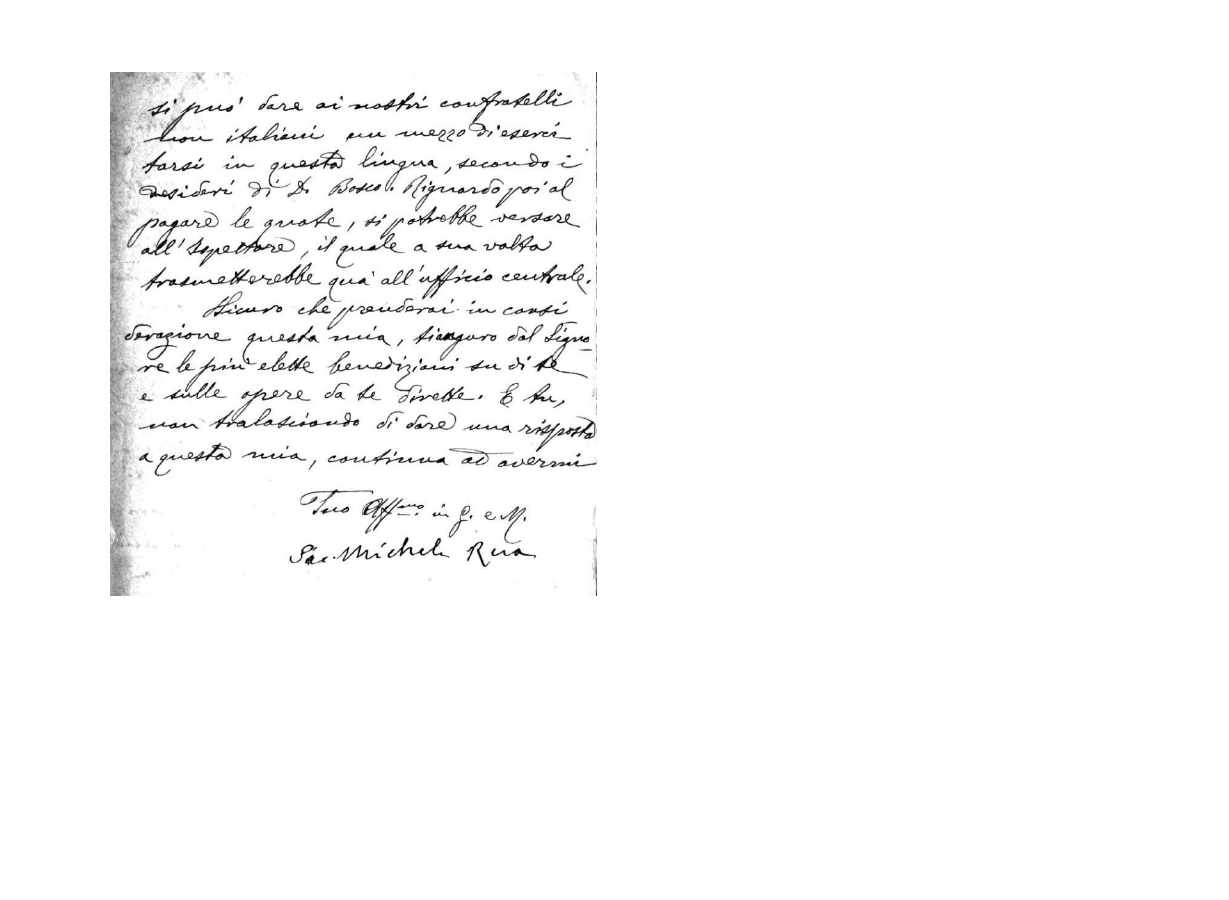 si può dare ai nostri confratelli
non italiani un mezzo di eserci
tarsi in questa lingua, secondo i
desideri di D. Bosco. Riguardo poi al
pagare le quote, si potrebbe versare
all'Ispettore, il quale a sua volta
trasmetterebbe qua all'ufficio centrale.
Sicuro che prenderai in consi
derazione questa mia, ti auguro dal Signo
re le più elette benedizioni su di te
e sulle opere da te dirette. E tu,
non tralasciando di dare una risposta
a questa mia, continua ad avermi
Tuo Aff.mo in G. e M.
Sac Michele Rua